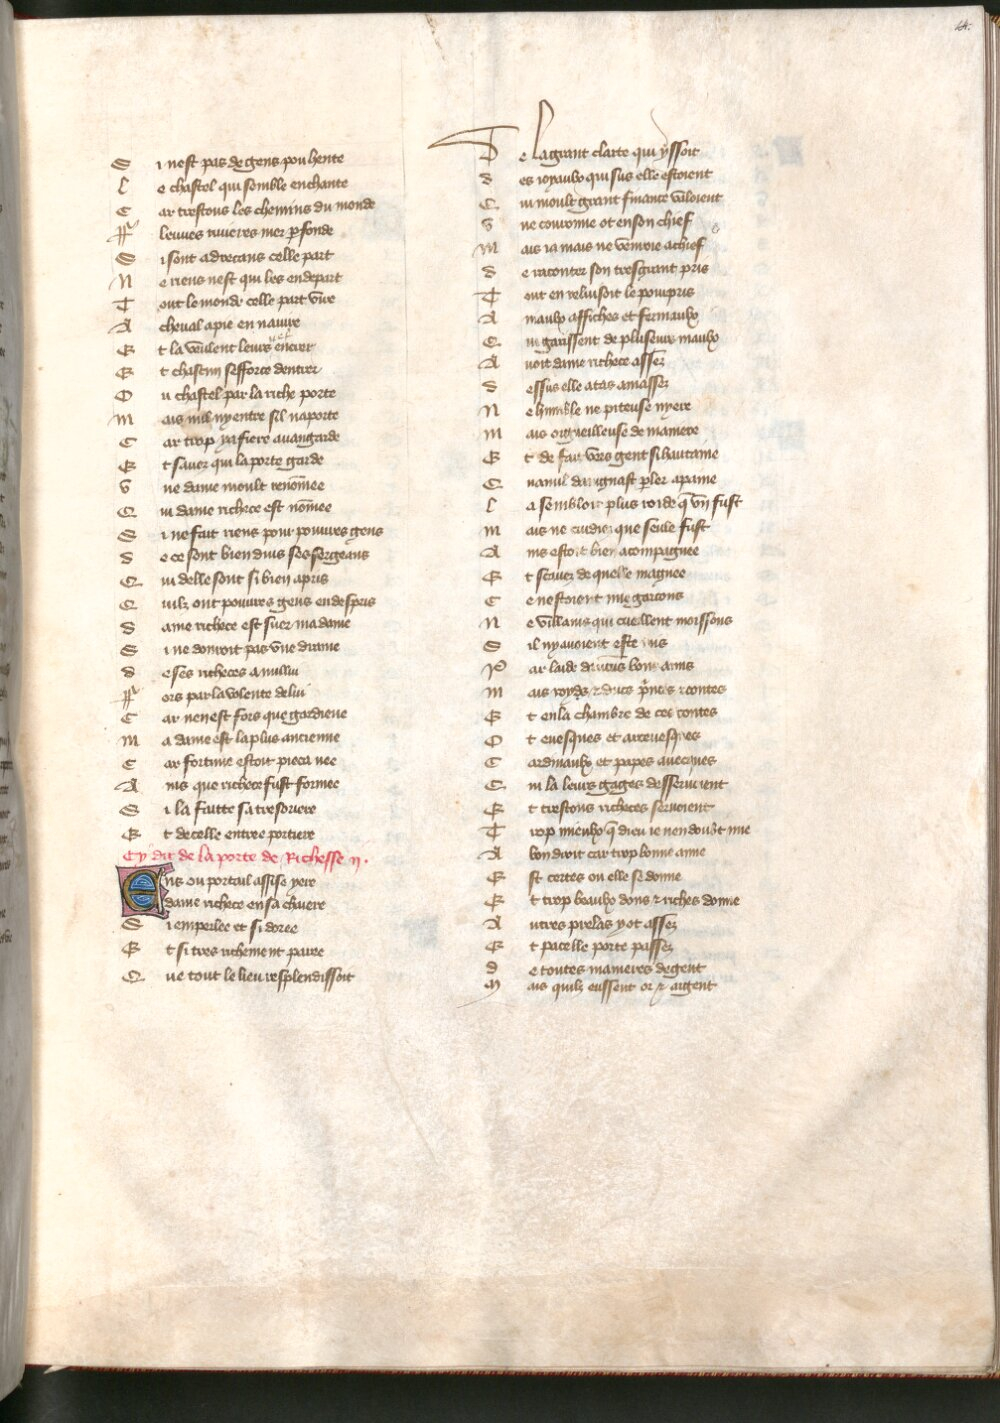 14.
S i nest pas de gens pou hente
L e chastel qui semble enchante
C ar trestous les chemins du monde
ff leuves riuieres mer p̱fonde
S i sont adrecans celle part
N e riens nest qui les en depart
T out le monde celle part vire
A cheual a pie en nauire
E t la veulent leurs encrer
E t chascun sefforce dentrer
O u chastel par la riche porte
M ais nul ny entre sil naporte
C ar trop ya fiere auangarde
E t sauez qui la porte garde
V ne dame moult renōmee
Q ui dame richece est nōmee
S i ne fait riens pour pouures gens
S e ce sont bien duis ses sergeans
Q ui delle sont si bien apris
Q uilz ont pouures gens en despris
D ame richece est suer ma dame
S i ne donroit pas vne drame
D e ses richeces a nullui
ff ors par la volente de lui
C ar nen est fors que gardiene
M a dame est la plus ancienne
C ar fortune estoit pieca nee
A ins que richece fust formee
S i la faitte sa tresoriere
E t de celle entree portiere
Cy dit de la porte de Richesse ij.
Ens ou portail assise yere
dame richece en sa chaiere
S i emperlee et si doree
E t si tres richement paree
Q ue tout le lieu resplendissoit
D e la grant clarte qui yssoit
D es ioyaulx qui sus elle estoient
Q ui moult grant finance valoient
V ne couronne ot en son chief
M ais ia mais ne venroie a chief
D e raconter son tresgrant pris
T out en reluisoit le pourpris
A nnaulx affiches et fermaulx
Q ui garissent de pluseurs maulx
A uoit dame richece assez
D essus elle a tas amassez
N e humble ne piteuse nyere
M ais orgueilleuse de maniere
E t de fait vers gent si haultaine
Q ua nul daignast p̱ler a paine
L a sembloit plus roide q̄ vn fust
M ais ne cuidiez que seule fust
A ins estoit bien acompagnee
E t scauez de quelle magnee
C e nestoient mie garcons
N e villains qui cueillent moissons
S il ny auoient este mis
P ar laide daucūs bons amis
M ais roys ⁊ ducs p̄nces ⁊ contes
E t en la chambre de ces contes
O t euesques et arceuesques
C ardinaulx et papes auecques
Q ui la leurs gages desseruirent
E t trestous richeces seruoient
T rop mieulx q̄ dieu ie nen doubt mie
A bon droit car trop bonne amie
E st certes ou elle se donne
E t trop beaulx dons ⁊ riches donne
A utres prelas y ot assez
E t p̱ celle porte passez
D e toutes manieres de gent
M ais quilz eussent or ⁊ argent